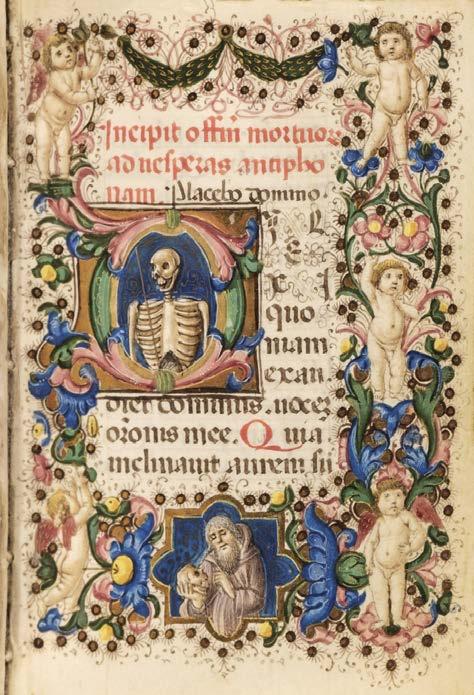 Incipit offiɱ mortuoꝝ
ad uesperas antipho
nam Placebo domino.
D I L
E
X I
quo
niam
exau
diet dominus .uocez
orōnis mee. Quia
inclinauit aurem su